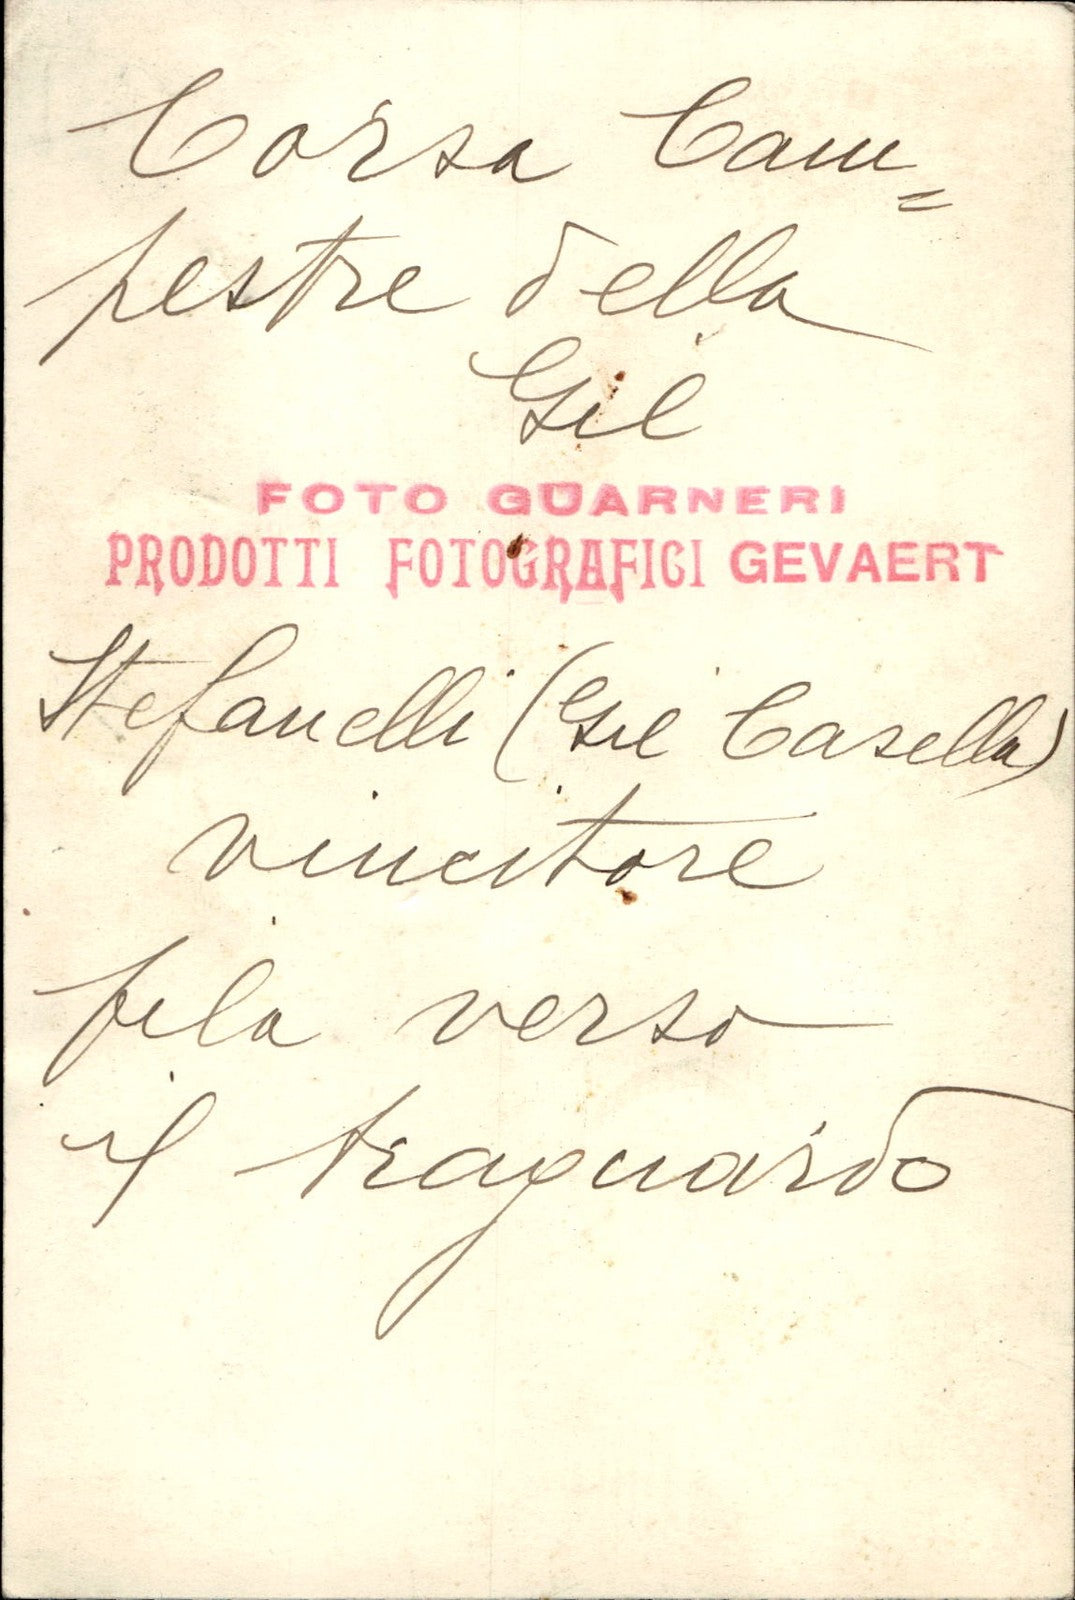 Corsa Cam=
pestre della
Gil
FOTO GUARNERI
PRODOTTI FOTOGRAFICI GEVAERT
Stefanelli (Gil Casella)
vincitore
fila verso
il traguardo